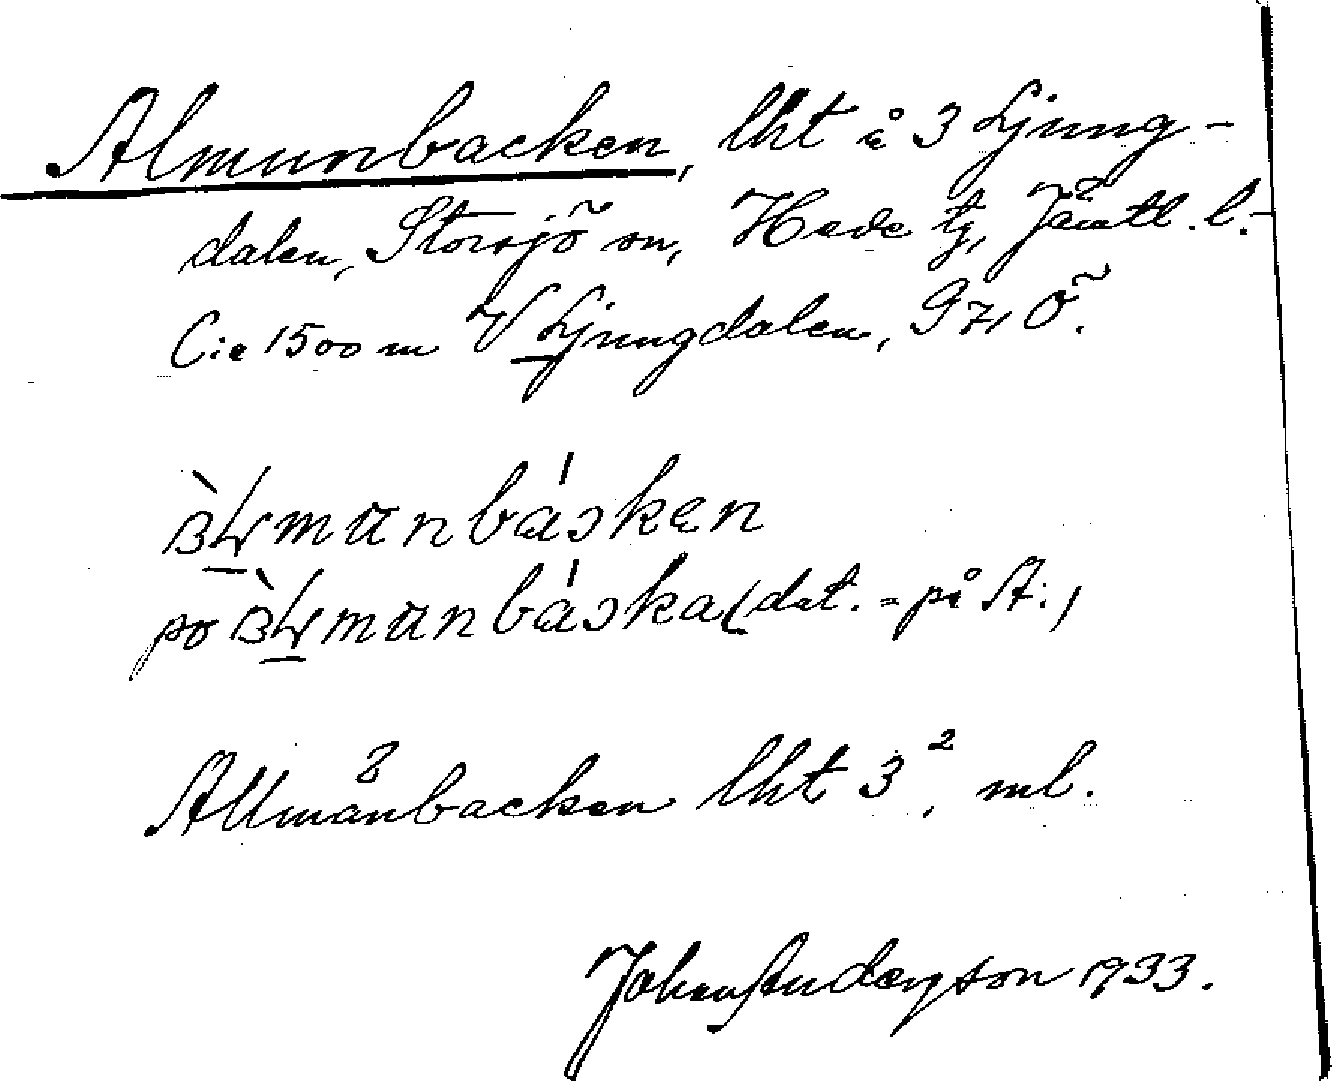 Almunbacken, lht å 3 Ljung-
dalen, Storsjö sn, Hede tg, Jämtl. l.
C:a 1500 m V Ljungdalen, 971 Ö.
(dat. = på A:)
Allmänbacken lht 3², ml.
Johan Anderson 1933.